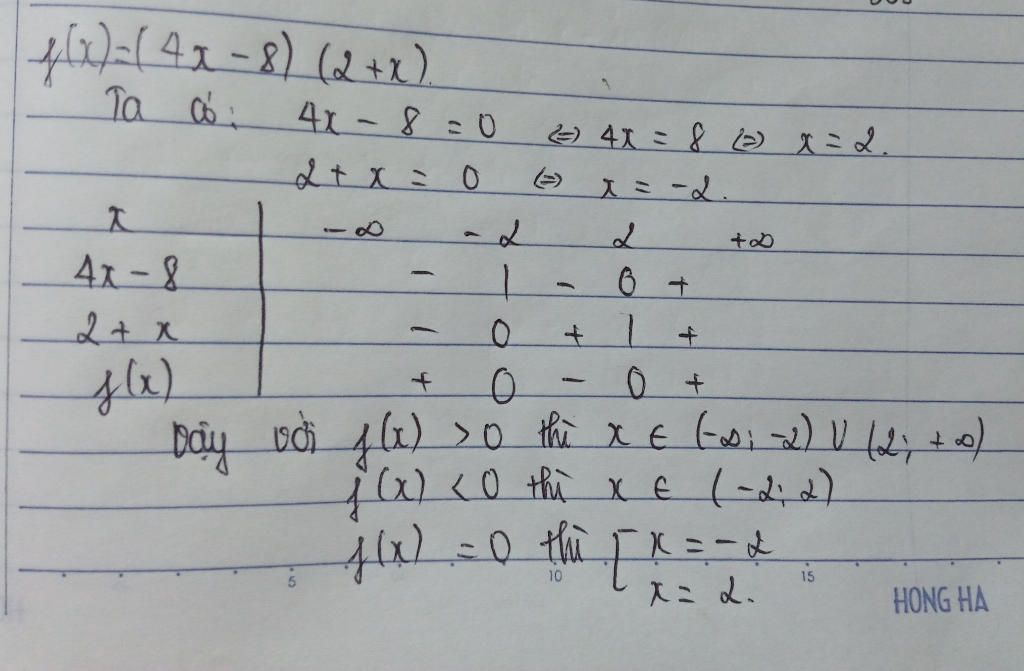 f(x)=(4x-8)(2+x).
Ta có: 4x - 8 = 0 ⇔ 4x = 8 ⇔ x = 2.
2 + x = 0 ⇔ x = -2.
x | -∞ -2 2 +∞
4x - 8 | - | - 0 +
2 + x | - 0 + | +
f(x) | + 0 - 0 +
Vậy với f(x) > 0 thì x ∈ (-∞; -2) ∪ (2; +∞)
f(x) < 0 thì x ∈ (-2; 2)
f(x) = 0 thì [ x = -2
x = 2.
5 10 15
HONG HA